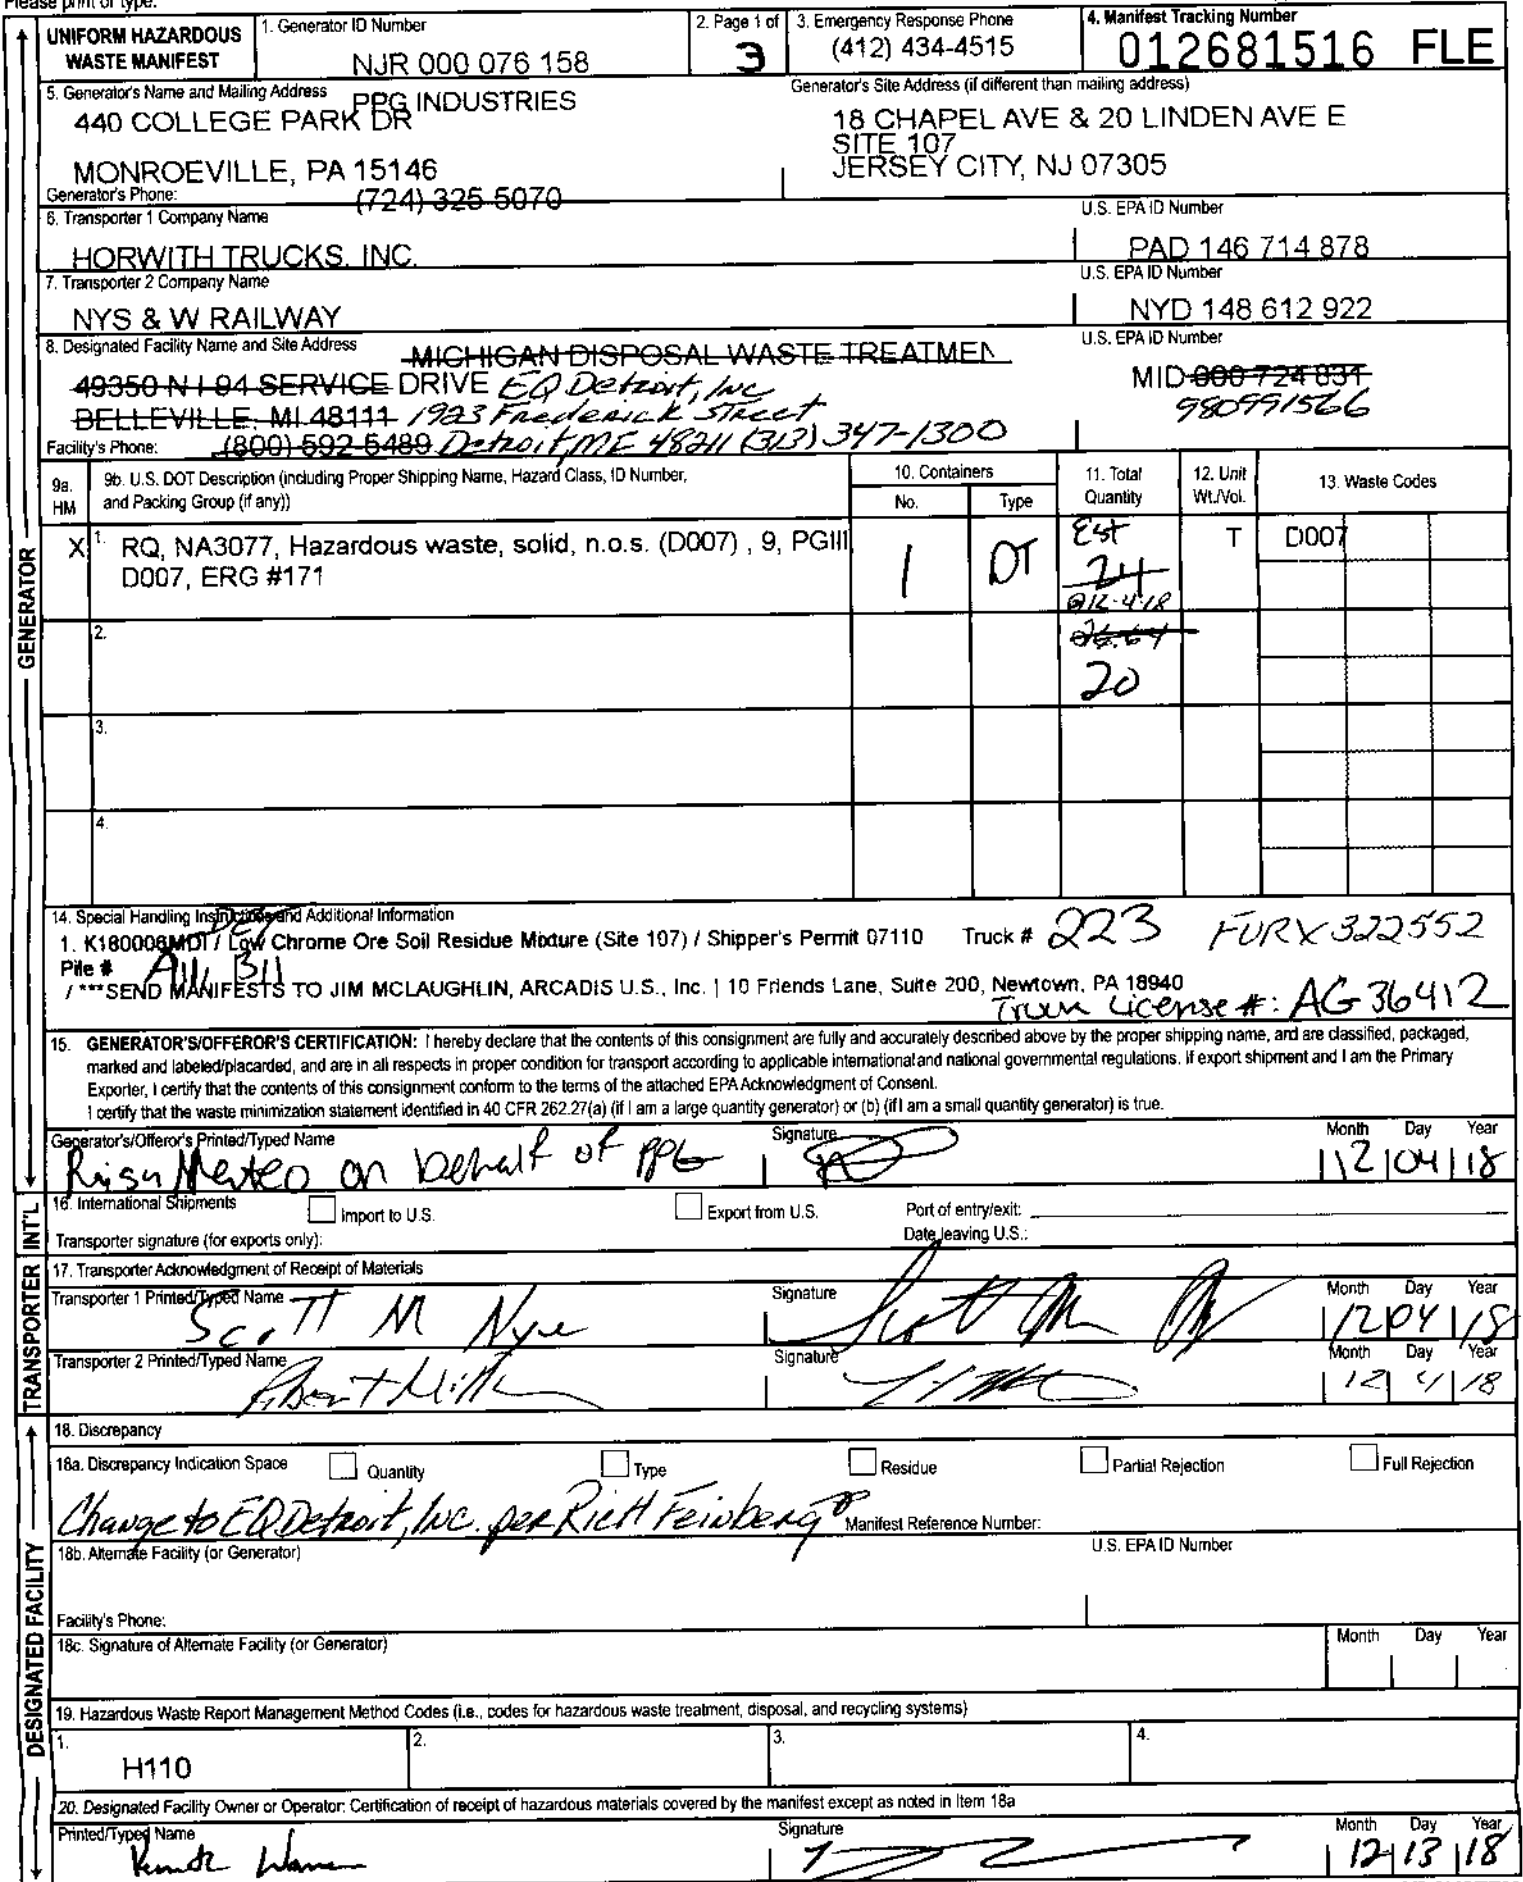 Please print or type.
UNIFORM HAZARDOUS WASTE MANIFEST
1. Generator ID Number
NJR 000 076 158
2. Page 1 of
3
3. Emergency Response Phone
(412) 434-4515
4. Manifest Tracking Number
012681516 FLE
5. Generator's Name and Mailing Address
PPG INDUSTRIES
440 COLLEGE PARK DR
MONROEVILLE, PA 15146
Generator's Phone:
(724) 325-5070
Generator's Site Address (if different than mailing address)
18 CHAPEL AVE & 20 LINDEN AVE E
SITE 107
JERSEY CITY, NJ 07305
6. Transporter 1 Company Name
HORWITH TRUCKS, INC.
U.S. EPA ID Number
PAD 146 714 878
7. Transporter 2 Company Name
NYS & W RAILWAY
U.S. EPA ID Number
NYD 148 612 922
8. Designated Facility Name and Site Address
MICHIGAN DISPOSAL WASTE TREATMEN
49350 N I-94 SERVICE DRIVE EQ Detroit, Inc
BELLEVILLE, MI 48111 1923 Frederick Street
Facility's Phone: (800) 592-5489 Detroit, MI 48211 (313) 347-1300
U.S. EPA ID Number
MID 000 724 831
980991566
9a. HM
9b. U.S. DOT Description (including Proper Shipping Name, Hazard Class, ID Number,
and Packing Group (if any))
10. Containers
No.
Type
11. Total Quantity
12. Unit Wt./Vol.
13. Waste Codes
X
1. RQ, NA3077, Hazardous waste, solid, n.o.s. (D007) , 9, PGIII
D007, ERG #171
1
DT
Est
24
12-4-18
26.64
20
T
D007
2.
3.
4.
14. Special Handling Instructions and Additional Information
DET
1. K180006MDI / Low Chrome Ore Soil Residue Mixture (Site 107) / Shipper's Permit 07110 Truck # 223 FURX 322552
Pile # A11, B11
/ ***SEND MANIFESTS TO JIM MCLAUGHLIN, ARCADIS U.S., Inc. | 10 Friends Lane, Suite 200, Newtown, PA 18940
Truck License #: AG36412
15. GENERATOR'S/OFFEROR'S CERTIFICATION: I hereby declare that the contents of this consignment are fully and accurately described above by the proper shipping name, and are classified, packaged,
marked and labeled/placarded, and are in all respects in proper condition for transport according to applicable international and national governmental regulations. If export shipment and I am the Primary
Exporter, I certify that the contents of this consignment conform to the terms of the attached EPA Acknowledgment of Consent.
I certify that the waste minimization statement identified in 40 CFR 262.27(a) (if I am a large quantity generator) or (b) (if I am a small quantity generator) is true.
Generator's/Offeror's Printed/Typed Name
on behalf of PPG
Signature
Month Day Year
12 04 18
16. International Shipments
Import to U.S.
Export from U.S.
Port of entry/exit:
Transporter signature (for exports only):
Date leaving U.S.:
17. Transporter Acknowledgment of Receipt of Materials
Transporter 1 Printed/Typed Name
Scott M Nye
Signature
Month Day Year
12 04 18
Transporter 2 Printed/Typed Name
Signature
Month Day Year
12 4 18
18. Discrepancy
18a. Discrepancy Indication Space
Quantity
Type
Residue
Partial Rejection
Full Rejection
Change to EQ Detroit, Inc. per Rich Feinberg
Manifest Reference Number:
18b. Alternate Facility (or Generator)
U.S. EPA ID Number
Facility's Phone:
18c. Signature of Alternate Facility (or Generator)
Month Day Year
19. Hazardous Waste Report Management Method Codes (i.e., codes for hazardous waste treatment, disposal, and recycling systems)
1. H110
2.
3.
4.
20. Designated Facility Owner or Operator: Certification of receipt of hazardous materials covered by the manifest except as noted in Item 18a
Printed/Typed Name
Signature
Month Day Year
12 13 18
GENERATOR
INT'L
TRANSPORTER
DESIGNATED FACILITY